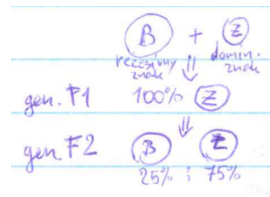 B + Z
recesívny znak domin. znak
gen. F1 100% Z
gen F2 B Z
25% : 75%